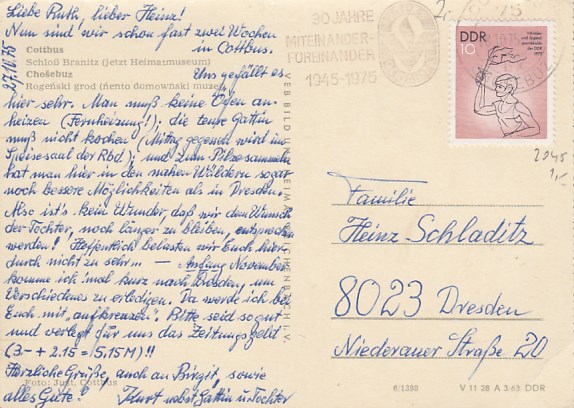 Liebe Ruth, lieber Heinz!
Nun sind wir schon fast zwei Wochen
in Cottbus.
27.10.75
Cottbus
Schloß Branitz (jetzt Heimatmuseum)
Chošebuz
Rogeński grod (něnto domownski muzej)
Uns gefällt es
hier sehr. Man muß keine Öfen an-
heizen (Fernheizung!); die teure Gattin
muß nicht kochen (Mittag gegessen wird im
Speisesaal der Rbd); und zum Pilzesammeln
hat man hier in den nahen Wäldern sogar
noch bessere Möglichkeiten als in Dresden.
Also ist's kein Wunder, daß wir dem Wunsch
der Tochter, noch länger zu bleiben, entsprochen
werden! Hoffentlich belasten wir Euch hier-
durch nicht zu sehr... — Anfang November
komme ich 'mal kurz nach Dresden, um
Verschiedenes zu erledigen. Da werde ich bei
Euch mit „aufkreuzen". Bitte seid so gut
und verlegt für uns das Zeitungsgeld
(3.- + 2.15 = 5.15 M)!!
Herzliche Grüße, auch an Birgit, sowie
alles Gute! Kurt nebst Gattin u. Tochter
Foto: Just, Cottbus
VEB BILD UND HEIM REICHENBACH I. V.
30 JAHRE
MITEINANDER-
FÜREINANDER
1945-1975
DDR
10
2045
1,-
Familie
Heinz Schladitz
8023 Dresden
Niederauer Straße 20
6/1398 V 11 28 A 3/63 DDR